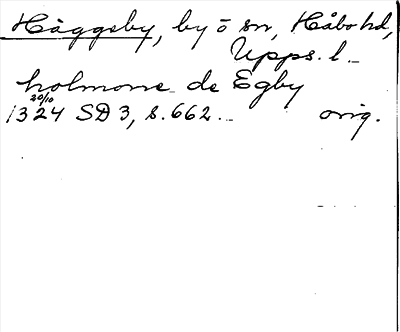 Häggeby, by ö sn, Håbo hd,
Upps. l.
holmone de Egby
1324 20/10 SD 3, s. 662.. orig.